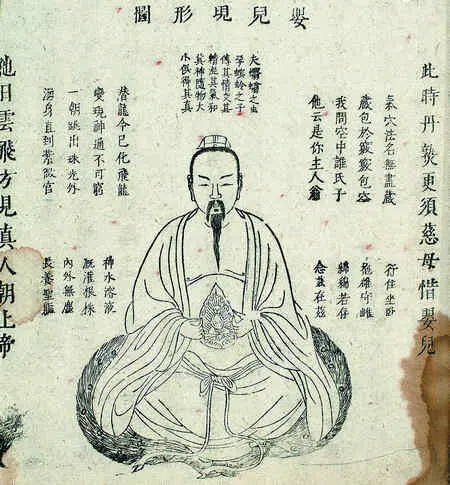 嬰兒現形圖
此時丹熟更須慈母惜嬰兒
氣穴法名無盡藏
藏包於竅竅包空
我問空中誰氏子
他云是你主人翁
夫蠮螉之虫
孕螟蛉之子
傳其情交其
精混其氣和
其神隨物大
小俱得其真
潛龍今已化飛龍
變現神通不可窮
一朝跳出珠光外
渾身直到紫微宮
行住坐臥
抱雄守雌
綿綿若存
念茲在茲
神水溶液
溉灌根株
內外無塵
長養聖軀
他日雲飛方見真人朝上帝